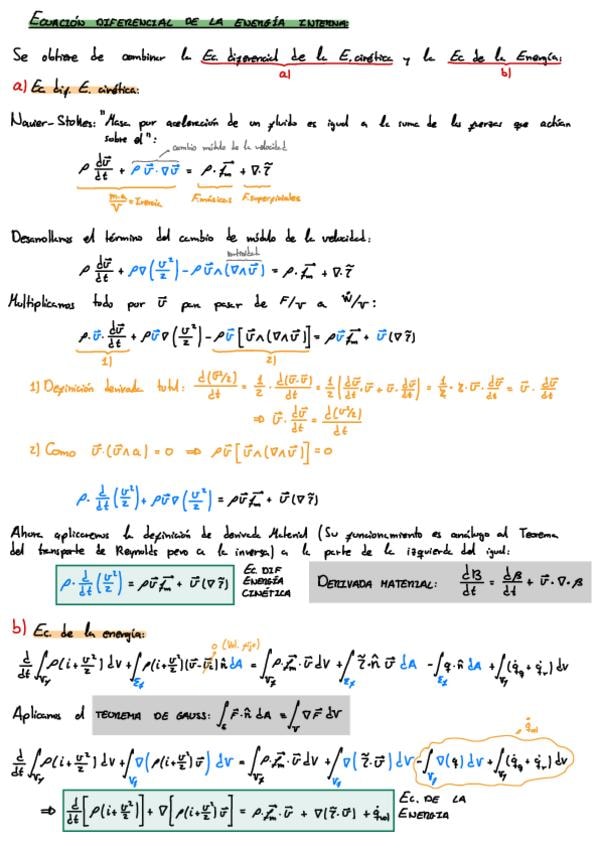 ECUACIÓN DIFERENCIAL DE LA ENERGÍA INTERNA:
Se obtiene de combinar la Ec. diferencial de la E. cinética y la Ec de la Energía:
a) b)
a) Ec. dif. E. cinética:
Navier-Stokes: "Masa por aceleración de un fluido es igual a la suma de las fuerzas que actúan
sobre él":
cambio módulo de la velocidad
ρ d𝑣⃗/dt + ρ 𝑣⃗·∇𝑣⃗ = ρ·f⃗m + ∇·τ̃
m·a/V = Inercia F. másicas F. superficiales
Desarrollamos el término del cambio de módulo de la velocidad:
vorticidad
ρ d𝑣⃗/dt + ρ∇(v²/2) - ρ𝑣⃗∧(∇∧𝑣⃗) = ρ·f⃗m + ∇·τ̃
Multiplicamos todo por 𝑣⃗ para pasar de F/V a Ẇ/V:
ρ·𝑣⃗·d𝑣⃗/dt + ρ𝑣⃗∇(v²/2) - ρ𝑣⃗[𝑣⃗∧(∇∧𝑣⃗)] = ρ𝑣⃗f⃗m + 𝑣⃗(∇τ̃)
1) 2)
1) Definición derivada total: d(v²/2)/dt = 1/2 · d(𝑣⃗·𝑣⃗)/dt = 1/2 (d𝑣⃗/dt·𝑣⃗ + 𝑣⃗·d𝑣⃗/dt) = 1/2 · 2·𝑣⃗·d𝑣⃗/dt = 𝑣⃗·d𝑣⃗/dt
⇒ 𝑣⃗·d𝑣⃗/dt = d(v²/2)/dt
2) Como 𝑣⃗·(𝑣⃗∧a) = 0 ⇒ ρ𝑣⃗[𝑣⃗∧(∇∧𝑣⃗)] = 0
ρ·d/dt(v²/2) + ρ𝑣⃗∇(v²/2) = ρ𝑣⃗f⃗m + 𝑣⃗(∇τ̃)
Ahora aplicaremos la definición de derivada Material (Su funcionamiento es análogo al Teorema
del transporte de Reynolds pero a la inversa) a la parte de la izquierda del igual:
ρ·d/dt(v²/2) = ρ𝑣⃗f⃗m + 𝑣⃗(∇τ̃) EC. DIF ENERGÍA CINÉTICA DERIVADA MATERIAL: dβ/dt = dβ/dt + 𝑣⃗·∇·β
b) Ec. de la energía:
0 (Vol. fijo)
d/dt ∫Vf ρ(i+v²/2)dV + ∫Σf ρ(i+v²/2)(𝑣⃗-𝑣⃗c)n̂ dA = ∫Vf ρ·f⃗m·𝑣⃗ dV + ∫Σf τ̃·n̂ 𝑣⃗ dA - ∫Σf q·n̂ dA + ∫Vf (q̇q+q̇r)dV
Aplicamos el TEOREMA DE GAUSS: ∫Σ F⃗·n̂ dA = ∫V ∇F⃗ dV
q̇vol
d/dt ∫Vf ρ(i+v²/2)dV + ∫Vf ∇(ρ(i+v²/2)𝑣⃗) dV = ∫Vf ρ·f⃗m·𝑣⃗ dV + ∫Vf ∇(τ̃·𝑣⃗) dV - ∫Vf ∇(q) dV + ∫Vf (q̇q+q̇r)dV
⇒ d/dt[ρ(i+v²/2)] + ∇[ρ(i+v²/2)𝑣⃗] = ρ·f⃗m·𝑣⃗ + ∇(τ̃·𝑣⃗) + q̇vol EC. DE LA ENERGIA